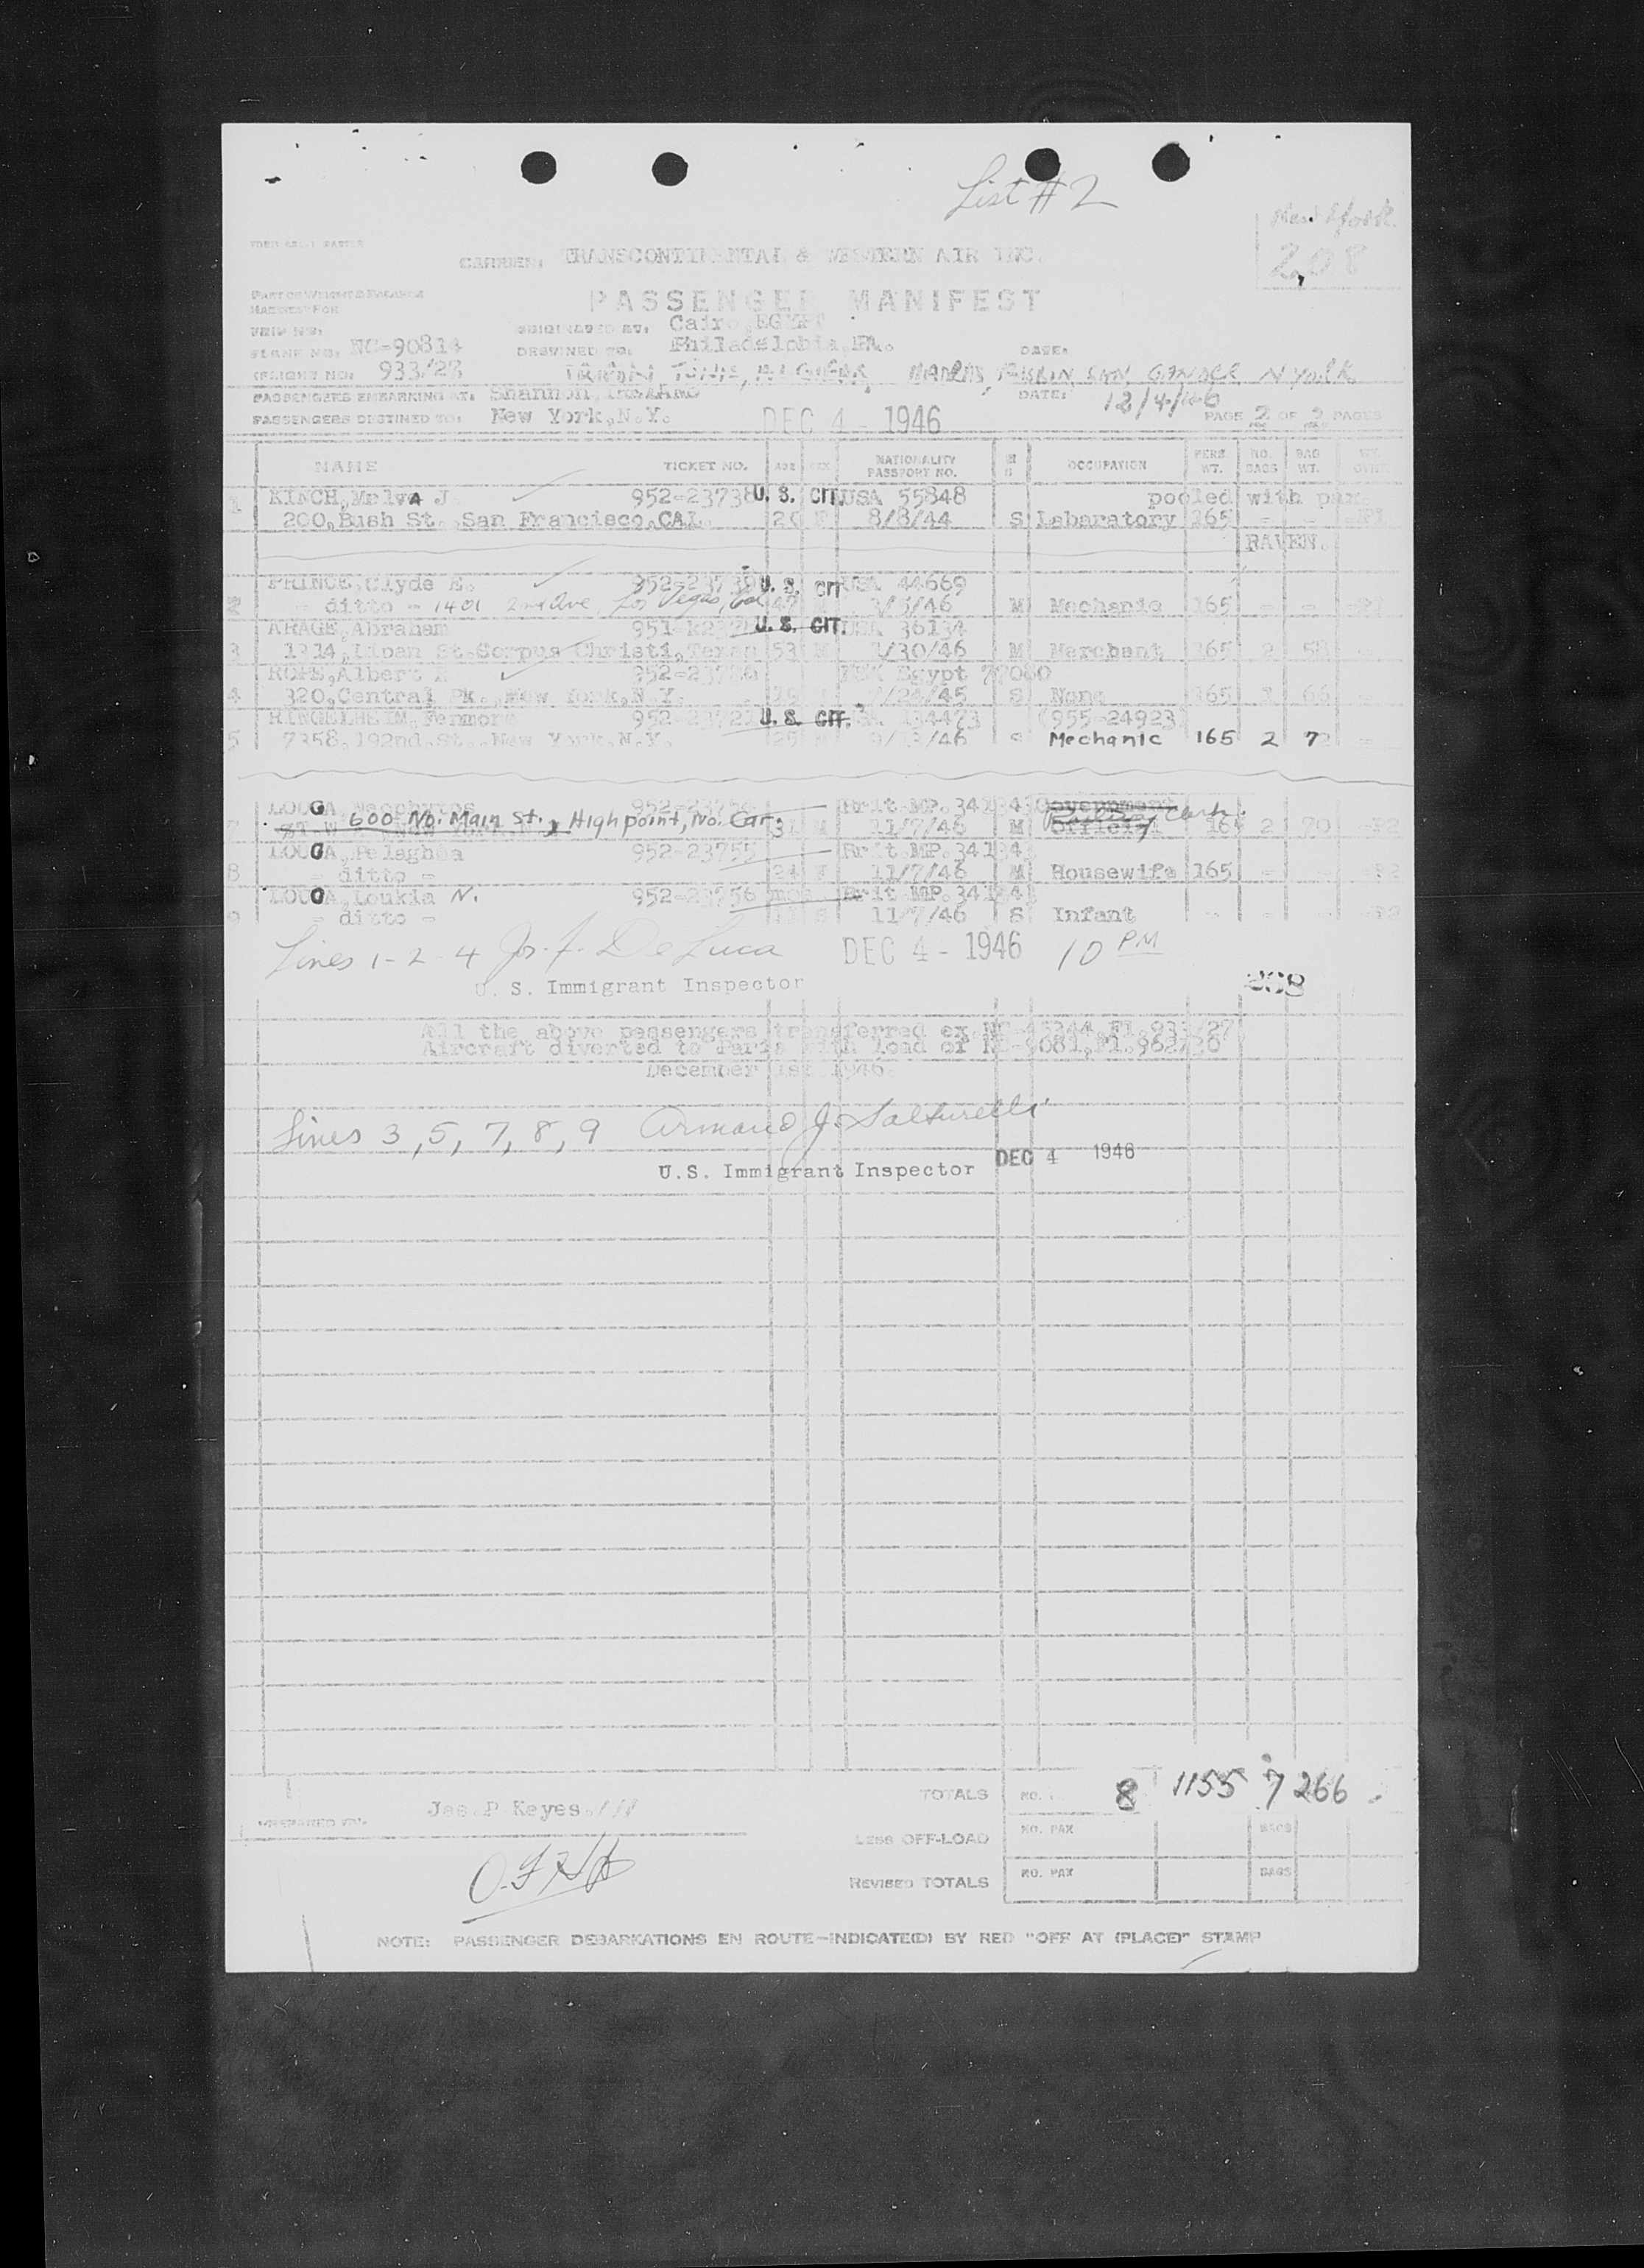 List # 2
208
CARRIER: TRANSCONTINENTAL & WESTERN AIR INC.
PASSENGER MANIFEST
PART OF WEIGHT & BALANCE
MANIFEST FOR
TRIP NO:
ORIGINATED AT: Cairo, EGYPT
PLANE NO: NC-90814
DESTINED TO: Philadelphia, PA.
DATE:
(FLIGHT NO: 933/28
TUNIS, ALGIERS, MADRID, LISBON, SNN, GANDER N YORK
PASSENGERS EMBARKING AT: Shannon, IRELAND
DATE: 12/4/46
PASSENGERS DESTINED TO: New York, N.Y.
DEC 4 - 1946
PAGE 2 OF PAGES
NAME TICKET NO. AGE SEX NATIONALITY PASSPORT NO. OCCUPATION PERS WT. NO. BAGS BAG WT.
1 KINCH, Melva J 952-23738 U. S. CIT USA 55848 pooled with
200, Bush St. San Francisco, CAL 8/8/44 S Labaratory 165 - -
RAVEN.
PRINCE, Clyde E. 952-23739 U. S. CIT USA 44669
2 - ditto - 1401 2nd Ave, Las Vegas, /5/46 M Mechanic 165 - -
ARAGE, Abraham U. S. CIT. USA 36134
3 Lipan St. Corpus Christi, Texas 53 M /30/46 M Merchant 165 2 58
ROFE, Albert Egypt 77060
4 320, Central Pk., New York, N.Y. /45 S None 165 66
RINGELHEIM, Fenmore U. S. CIT. 134473 (955-24923)
5 7358, 192nd. St., New York, N.Y. 25 /46 S Mechanic 165 2 72
LOUGA, 952-23754 Brit MP. 34134 Government
7 600 No. Main St., High Point, No. Car. 31 M 11/7/46 M Official 165 2 70
LOUCA, Pelaghea 952-23755 Brit MP. 34134
8 - ditto - 24 F 11/7/46 M Housewife 165 - -
LOUCA, Loukia N. 952-23756 Brit MP. 34134
9 - ditto - 11/7/46 S Infant - - -
Lines 1-2-4 Jos. F. De Luca DEC 4 - 1946 10 PM
U. S. Immigrant Inspector
208
All the above passengers transferred ex. NC-45344, Fl. 933/27
Aircraft diverted to Paris with load of Fl. 962/30
December 1st 1946
Lines 3, 5, 7, 8, 9 Armand J. Salturelli
U.S. Immigrant Inspector DEC 4 1946
TOTALS NO. 8 1155 7 266
PREPARED BY: Jas. P. Keyes
LESS OFF-LOAD NO. PAX BAGS
REVISED TOTALS NO. PAX BAGS
NOTE: PASSENGER DEBARKATIONS EN ROUTE—INDICATE(D) BY RED "OFF AT (PLACE)" STAMP